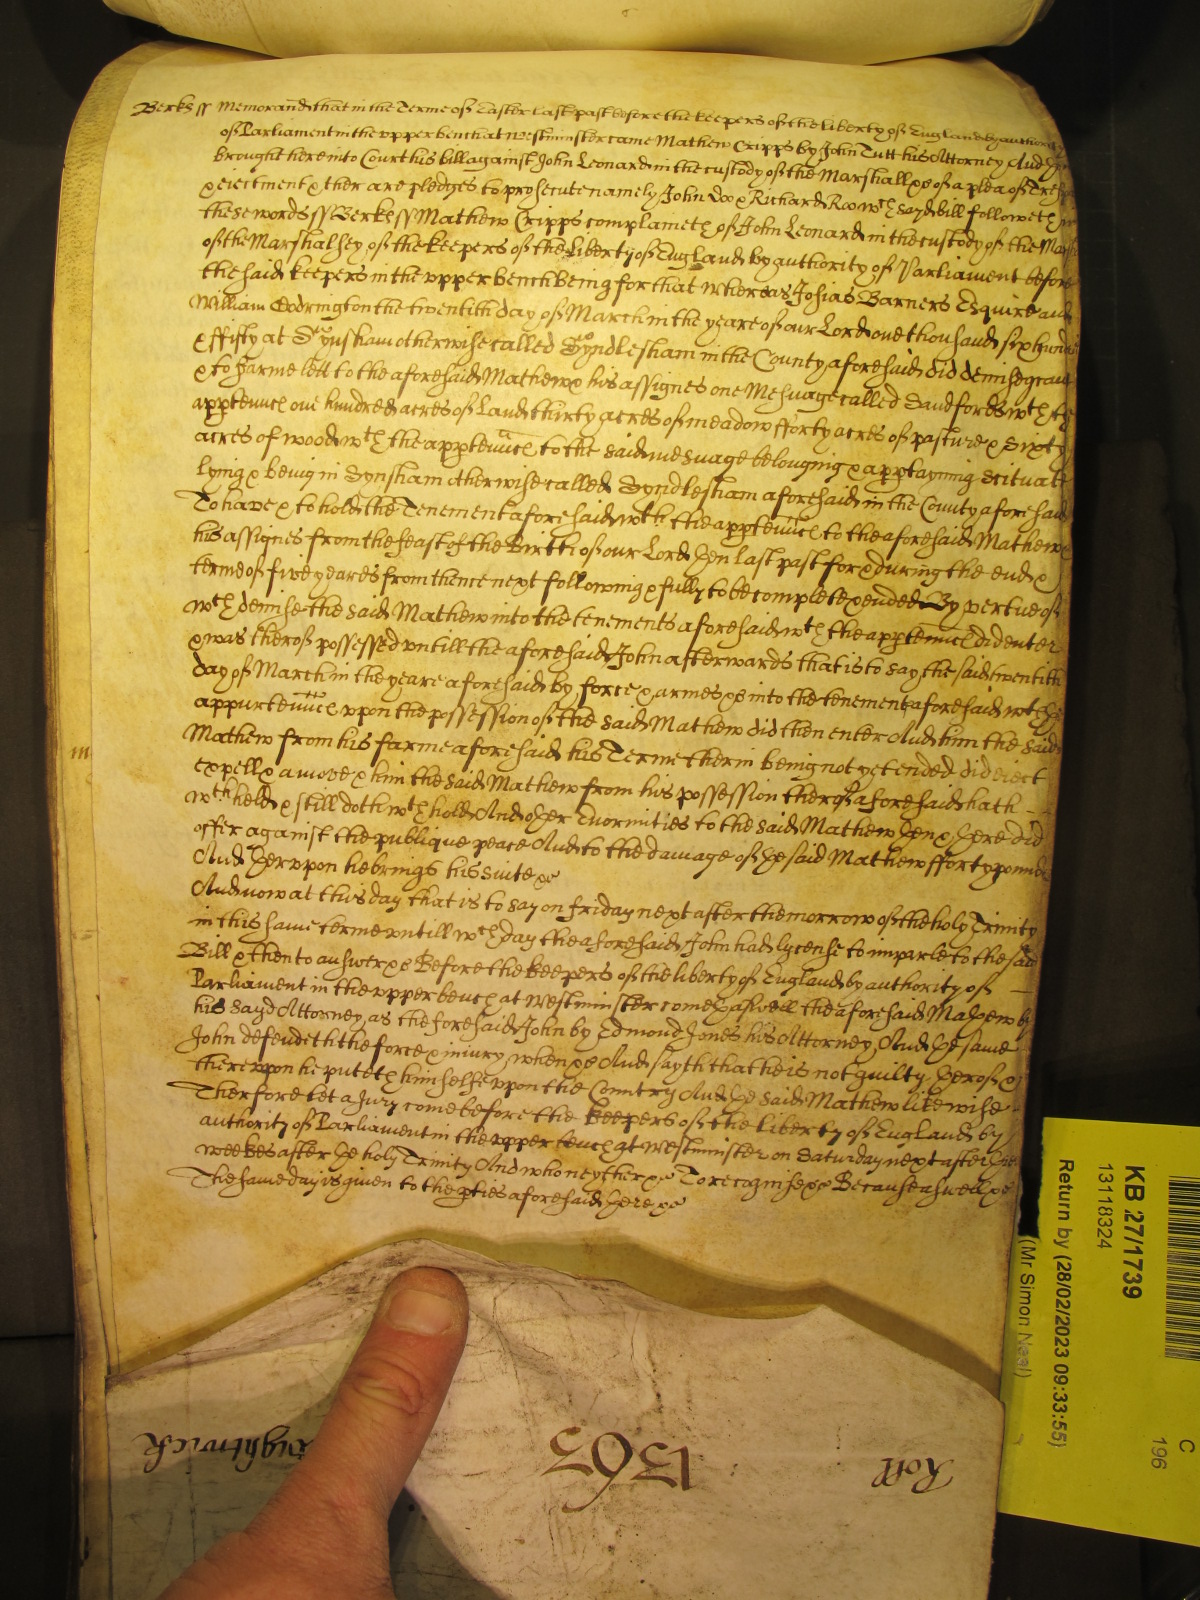 Berks ss Memorand that in the Terme of Easter last past before the keepers of the liberty of England by authority
of Parliament in the vpper bench at westminster came Mathew Cripps by John Tutt his Attorney And
brought here into Court his bill against John Leonard in the custody of the Marshall &c of a plea of Tres
& eiectment & ther are pledges to prosecute namely John Doo & Richard Roo wch sayd Bill followeth in
these words ss Berks ss Mathew Cripps complaineth of John Leonard in the custody of the Mar
of the Marshalsey of the keepers of the Liberty of England by authority of Parliament before
the said keepers in the vpper bench being for that whereas Josias Barners Esquire and
William on the twentith day of March in the yeare of our Lord one thousand six hundred
& fifty at Synsham otherwise called Syndlesham in the County aforesaid did demise graunt
& to Farme lett to the aforesaid Mathew & his assignes one Mesuage called Sandfords wth the
apptennces one hundred acres of Land thirty acres of meadow fforty acres of pasture & Sixty
acres of wood wth the apptennces to the said mesuage belonging & apptayning Scituate
lying & being in Synsham otherwise called Syndlesham aforesaid in the County aforesaid
To have & to hold the Tenement aforesaid wth the apptennces to the aforesaid Mathew &
his assignes from the feast of the Birth of our Lord then last past for & during the end &
terme of five yeares from thence next following & fully to be complete & ended By vertue of
wch demise the said Mathew into the tenements aforesaid wth the apptennces did enter
& was therof possessed vntill the aforesaid John afterwards that is to say the said twentith
day of March in the yeare aforesaid by force & armes &c into the tenements aforesaid wth the
appurtennces vpon the possession of the said Mathew did then enter And him the said
Mathew from his farme aforesaid his Terme therin being not yet ended did eiect
expell & amove & him the said Mathew from his possession therof aforesaid hath
wthheld & still doth wthhold And other Enormities to the said Mathew then & there did
offer against the publique peace And to the damage of the said Mathew fforty pounds
And thervpon he brings his suite &c
And now at this day that is to say on friday next after the morrow of the holy Trinity
in this same terme vntill wch day the aforesaid John had lycense to imparle to the said
Bill & then to answer &c Before the keepers of the liberty of England by authority of
Parliament in the vpper bench at westminster cometh aswell the aforesaid Mathew by
his sayd Attorney, as the foresaid John by Edmond Jones his Attorney, And the same
John defendeth the force & iniury when &c And sayth that he is not guilty therof &
therevpon he puteth himselfe vpon the Country And the said Mathew likewise
Therfore let a Jury come before the keepers of the liberty of England by
authority of Parliament in the vpper bench at westminster on Saturday next after three
weekes after the holy Trinity And who neyther &c To recognise &c Because aswell &c
The same day is given to the pties aforesaid there &c
m
Roll
1363
KB 27/1739
13118324
Return by (28/02/2023 09:33:55)
(Mr Simon Neal)
C
196